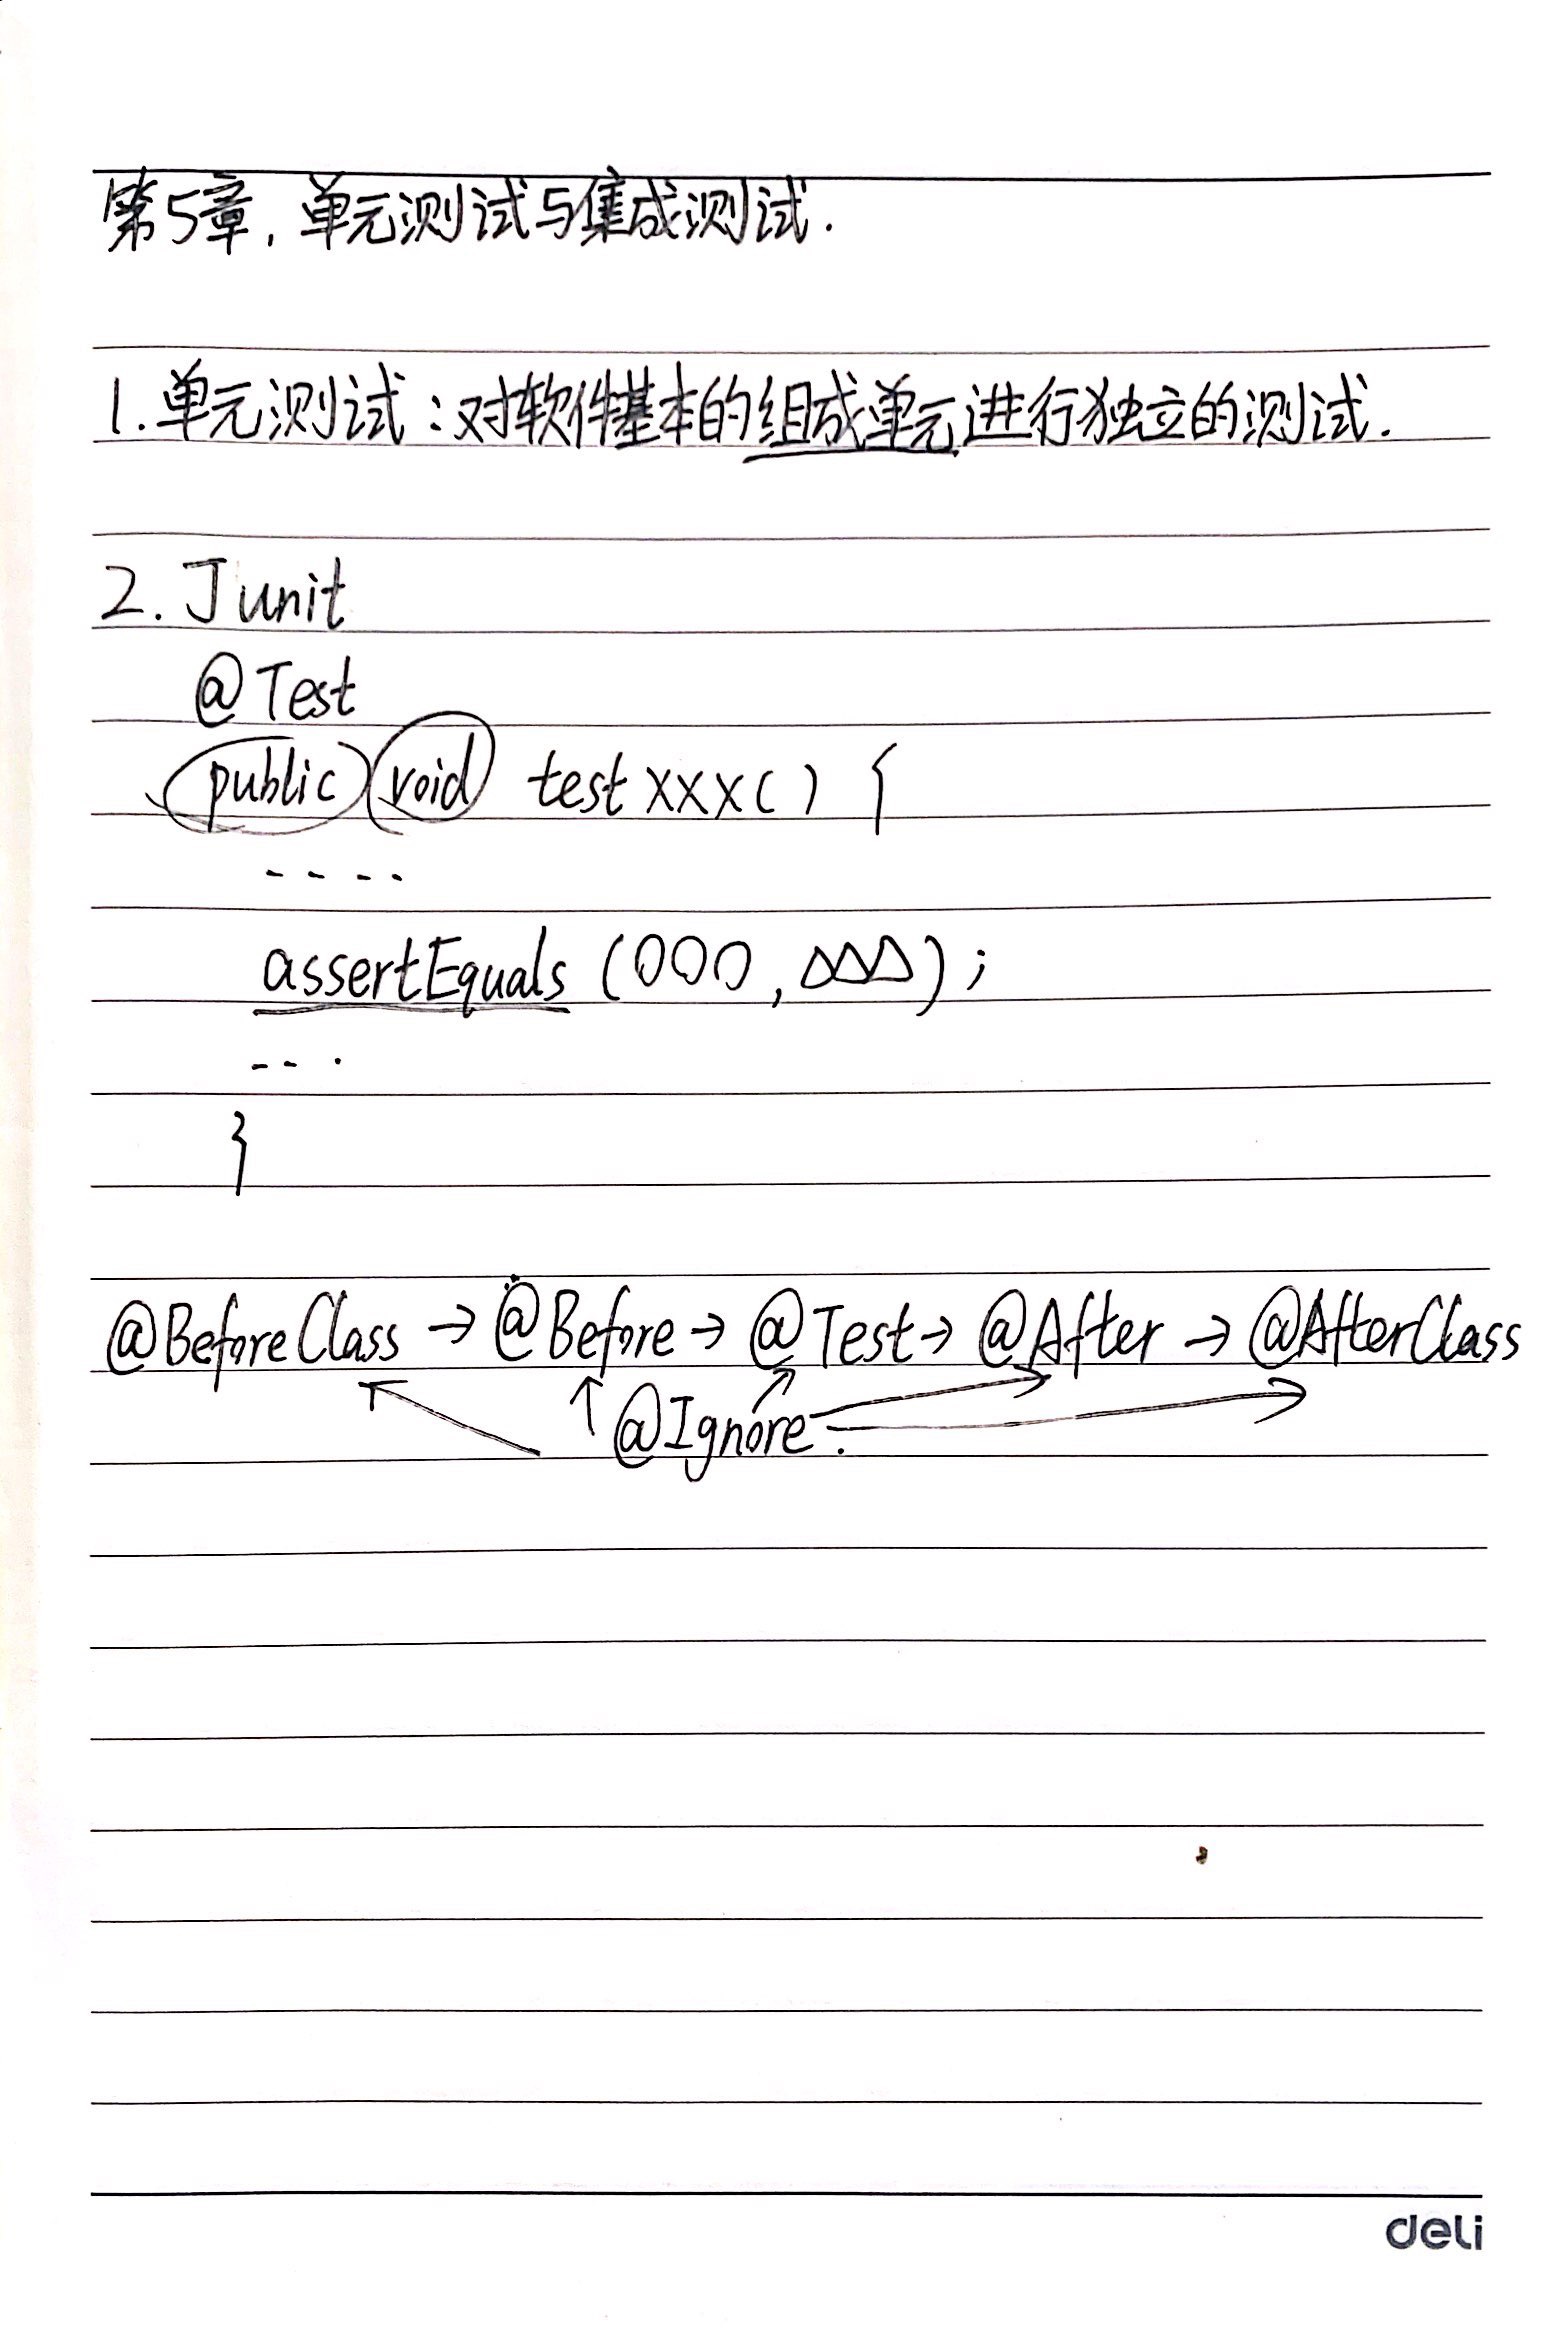 第5章,单元测试与集成测试.
1.单元测试:对软件基本的组成单元进行独立的测试.
2. Junit
@Test
public void testXXX() {
----
assertEquals (OOO,△△△);
--.
}
@BeforeClass → @Before → @Test → @After → @AfterClass
@Ignore.
deli